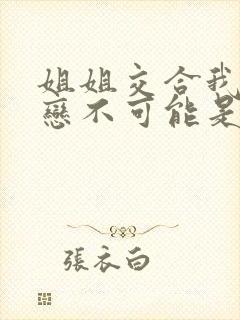 姐姐交合我
戀不可能是
張衣白